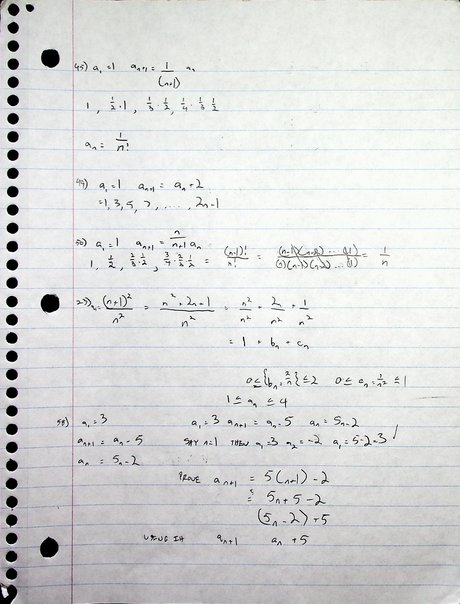 45) a₁=1 aₙ₊₁ = 1/(n+1) aₙ
1, 1/2·1, 1/3·1/2, 1/4·1/3·1/2
aₙ = 1/n!
49) a₁=1 aₙ₊₁ = aₙ+2
=1,3,5,7,...,2n-1
50) a₁=1 aₙ₊₁ = n/(n+1) aₙ
1, 1/2, 2/3·1/2, 3/4·2/3·1/2 = (n-1)!/n! = (n-1)(n-2)...(1)/(n)(n-1)(n-2)...(1) = 1/n
= (n+1)²/n² = n²+2n+1/n² = n²/n² + 2n/n² + 1/n²
= 1 + bₙ + cₙ
0≤{bₙ=2/n}≤2 0≤cₙ=1/n²≤1
1≤aₙ≤4
58) a₁=3 a₁=3 aₙ₊₁=aₙ-5 aₙ=5n-2
aₙ₊₁ = aₙ-5 SAY n=1 THEN a₁=3 a₂=-2 a₁=5-2=3 ✓
aₙ = 5n-2
PROVE aₙ₊₁ = 5(n+1)-2
= 5n+5-2
(5n-2)+5
USING IH aₙ₊₁ aₙ+5